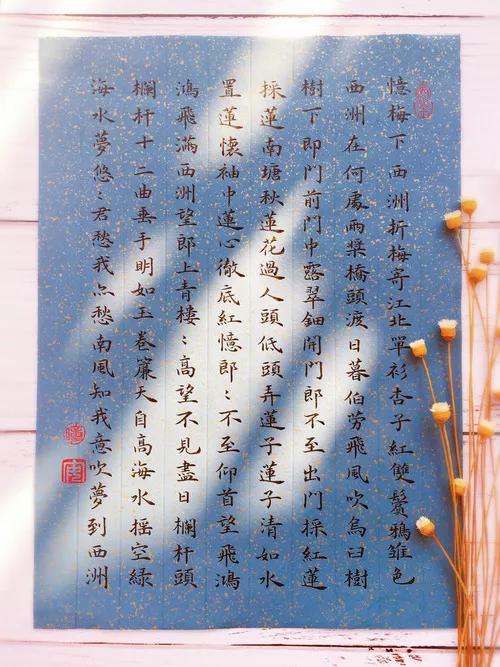 憶梅下西洲折梅寄江北單衫杏子紅雙鬢鴉雛色
西洲在何處兩槳橋頭渡日暮伯勞飛風吹烏臼樹
樹下即門前門中露翠鈿開門郎不至出門採紅蓮
採蓮南塘秋蓮花過人頭低頭弄蓮子蓮子清如水
置蓮懷袖中蓮心徹底紅憶郎〻不至仰首望飛鴻
鴻飛滿西洲望郎上青樓〻高望不見盡日欄杆頭
欄杆十二曲垂手明如玉卷簾天自高海水搖空綠
海水夢悠〻君愁我亦愁南風知我意吹夢到西洲